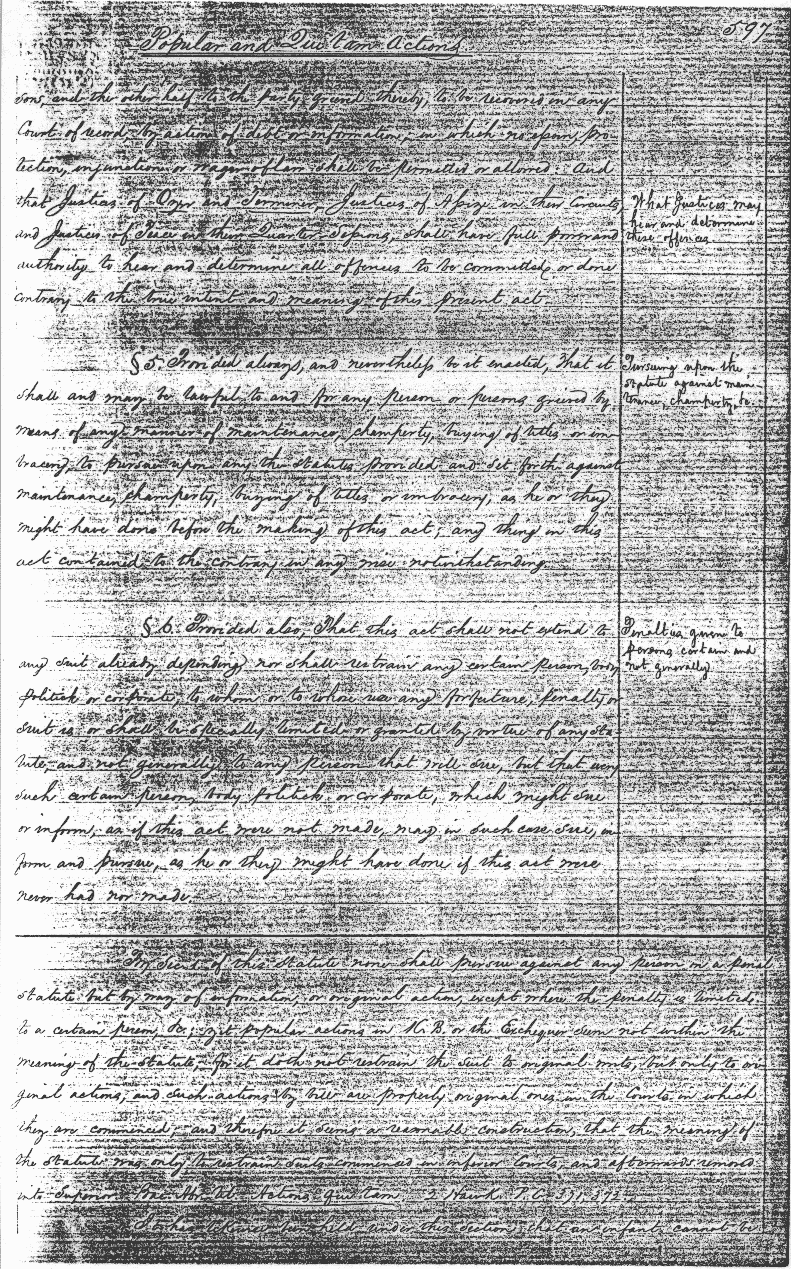 597
Popular and Qui tam Actions
son, and the other half to the party grieved thereby, to be recovered in any
Court of record by action of debt or information, in which no essoin, pro-
tection, injunction or wager of law shall be permitted or allowed: And
that Justices of Oyer and Terminer, Justices of Assize in their Circuits,
and Justices of Peace in their Quarter Sessions, shall have full power and
authority to hear and determine all offences to be committed, or done
contrary to the true intent and meaning of this present act.
What Justices may
hear and determine
these offences.
§ 5. Provided always, and nevertheless be it enacted, That it
shall and may be lawful to and for any person or persons grieved by
means of any manner of maintenance, champerty, buying of titles or im-
bracery, to pursue upon any the statutes provided and set forth against
maintenance, champerty, buying of titles or imbracery, as he or they
might have done before the making of this act; any thing in this
act contained to the contrary in any wise notwithstanding.
Pursuing upon the
statute against main-
tenance, champerty, &c
§ 6. Provided also, That this act shall not extend to
any suit already depending, nor shall restrain any certain person, body
politick or corporate, to whom or to whose use any forfeiture, penalty or
suit is or shall be specially limited or granted by virtue of any sta-
tute, and not generally to any person that will sue, but that every
such certain person, body politick or corporate, which might sue
or inform, as if this act were not made, may in such case sue, in-
form and pursue, as he or they might have done if this act were
never had nor made.
Penalties given to
persons certain and
not generally.
of this statute none shall pursue against any person on a penal
statute but by way of information, or original action, except where the penalty is limited
to a certain person, &c; yet popular actions in K.B. or the Exchequer seem not within the
meaning of the statute, for it doth not restrain the suit to original writs, but only to ori-
ginal actions; and such actions by bill are properly original ones in the Courts in which
they are commenced; and therefore it seems a reasonable construction, that the meaning of
the statute was only to restrain suits commenced in inferior Courts, and afterwards removed
into Superior. Bac. Abr. tit. Actions qui tam, 2 Hawk. P.C.
been held under this section, that an infant cannot be